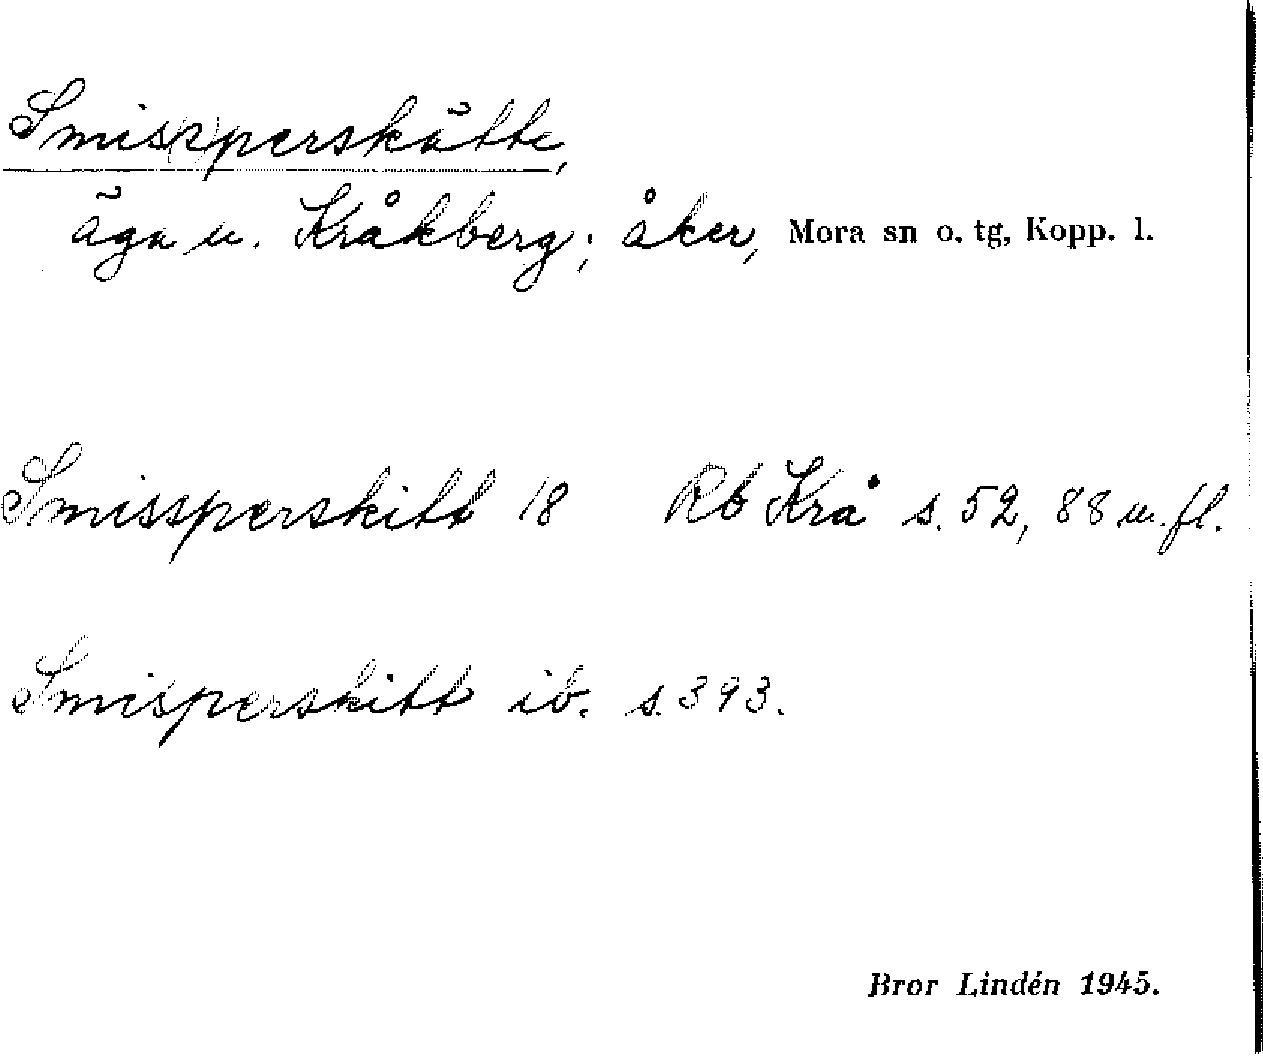 Smis(s)perskätte,
äga u. Kråkberg; åker, Mora sn o. tg, Kopp. l.
Smissperskitt 18 Rb Krå s. 52, 88 m. fl.
Smisperskitt ib. s. 393.
Bror Lindén 1945.